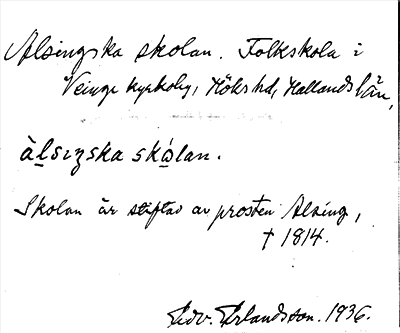 Alsingska skolan. Folkskola i
Veinge kyrkoby, Höks hd, Hallands län,
àlsiŋska skólan.
Skolan är stiftad av prosten Alsing,
† 1814.
Edv. Erlandsson. 1936.